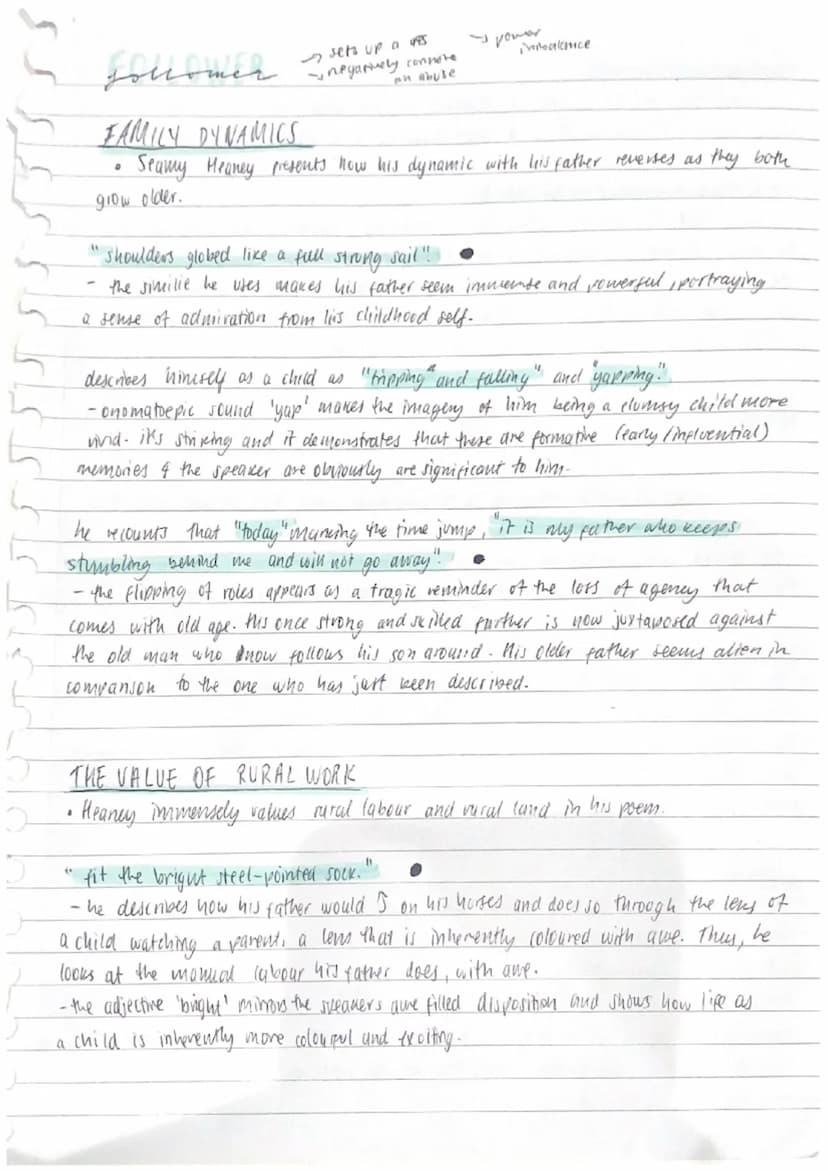 FOLLOWER
follower
→ sets up a
→ negatively connote
an abuse
→ power
imbalance
FAMILY DYNAMICS
• Seamy Heaney presents how his dynamic with his father reverses as they both
grow older.
"shoulders globed like a full strong sail".
- the similie he uses makes his father seem immense and powerful, portraying
a sense of admiration from his childhood self.
describes himself as a child as "tripping" and falling" and "yapping."
- onomatoepic sound 'yap' makes the imagery of him being a clumsy child more
vivid. it's striking and it demonstrates that these are formative (early/influential)
memories & the speaker are obviously are significant to him.
he recounts that "today" marking the time jump, "it is my father who keeps
stumbling behind me and will not go away".
- the flipping of roles appears as a tragic reminder of the loss of agency that
comes with old age. His once strong and skilled further is now juxtaposed against
the old man who now follows his son around. His older father seems alien in
comparison to the one who has just been described.
THE VALUE OF RURAL WORK
• Heaney immensely values rural labour and rural land in his poem.
"fit the bright steel-pointed sock."
- he describes how his father would ↑ on his horses and does so through the lens of
a child watching a parent, a lens that is inherently coloured with awe. Thus, he
looks at the manual labour his father does, with awe.
- the adjective 'bright' mirrors the speakers awe filled disposition and shows how life as
a child is inherently more colourful and exciting.